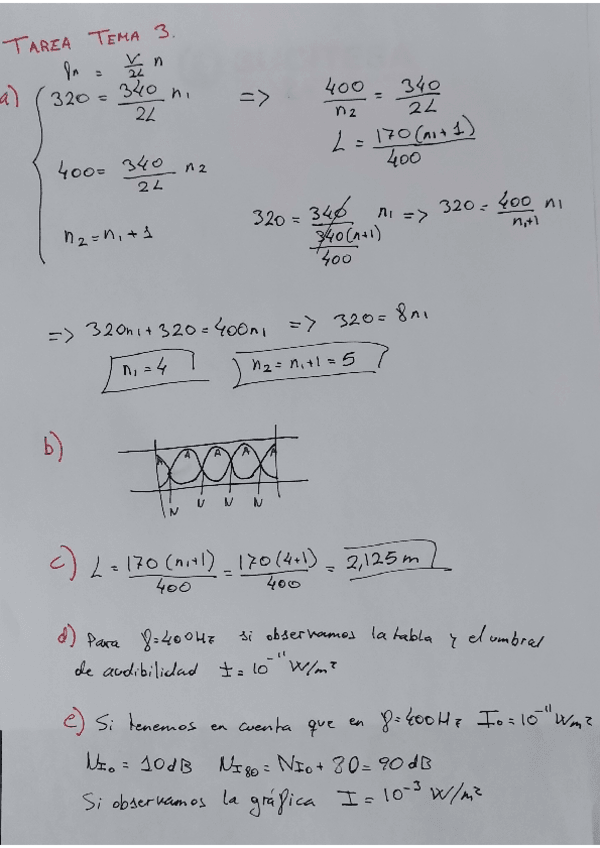 TAREA TEMA 3.
fn = V/2L n
a) { 320 = 340/2L n1 => 400/n2 = 340/2L
L = 170(n1+1)/400
400 = 340/2L n2
n2 = n1+1
320 = 340/(340(n+1)/400) n1 => 320 = 400/(n1+1) n1
=> 320n1 + 320 = 400n1 => 320 = 8n1
n1 = 4 n2 = n1+1 = 5
b)
A A A A A
N N N N
c) L = 170(n1+1)/400 = 170(4+1)/400 = 2,125 m
d) Para f=400Hz si observamos la tabla y el umbral
de audibilidad I = 10^-11 W/m²
e) Si tenemos en cuenta que en f=400Hz I0 = 10^-11 W/m²
NI0 = 10dB NI80 = NI0 + 80 = 90 dB
Si observamos la gráfica I = 10^-3 W/m²